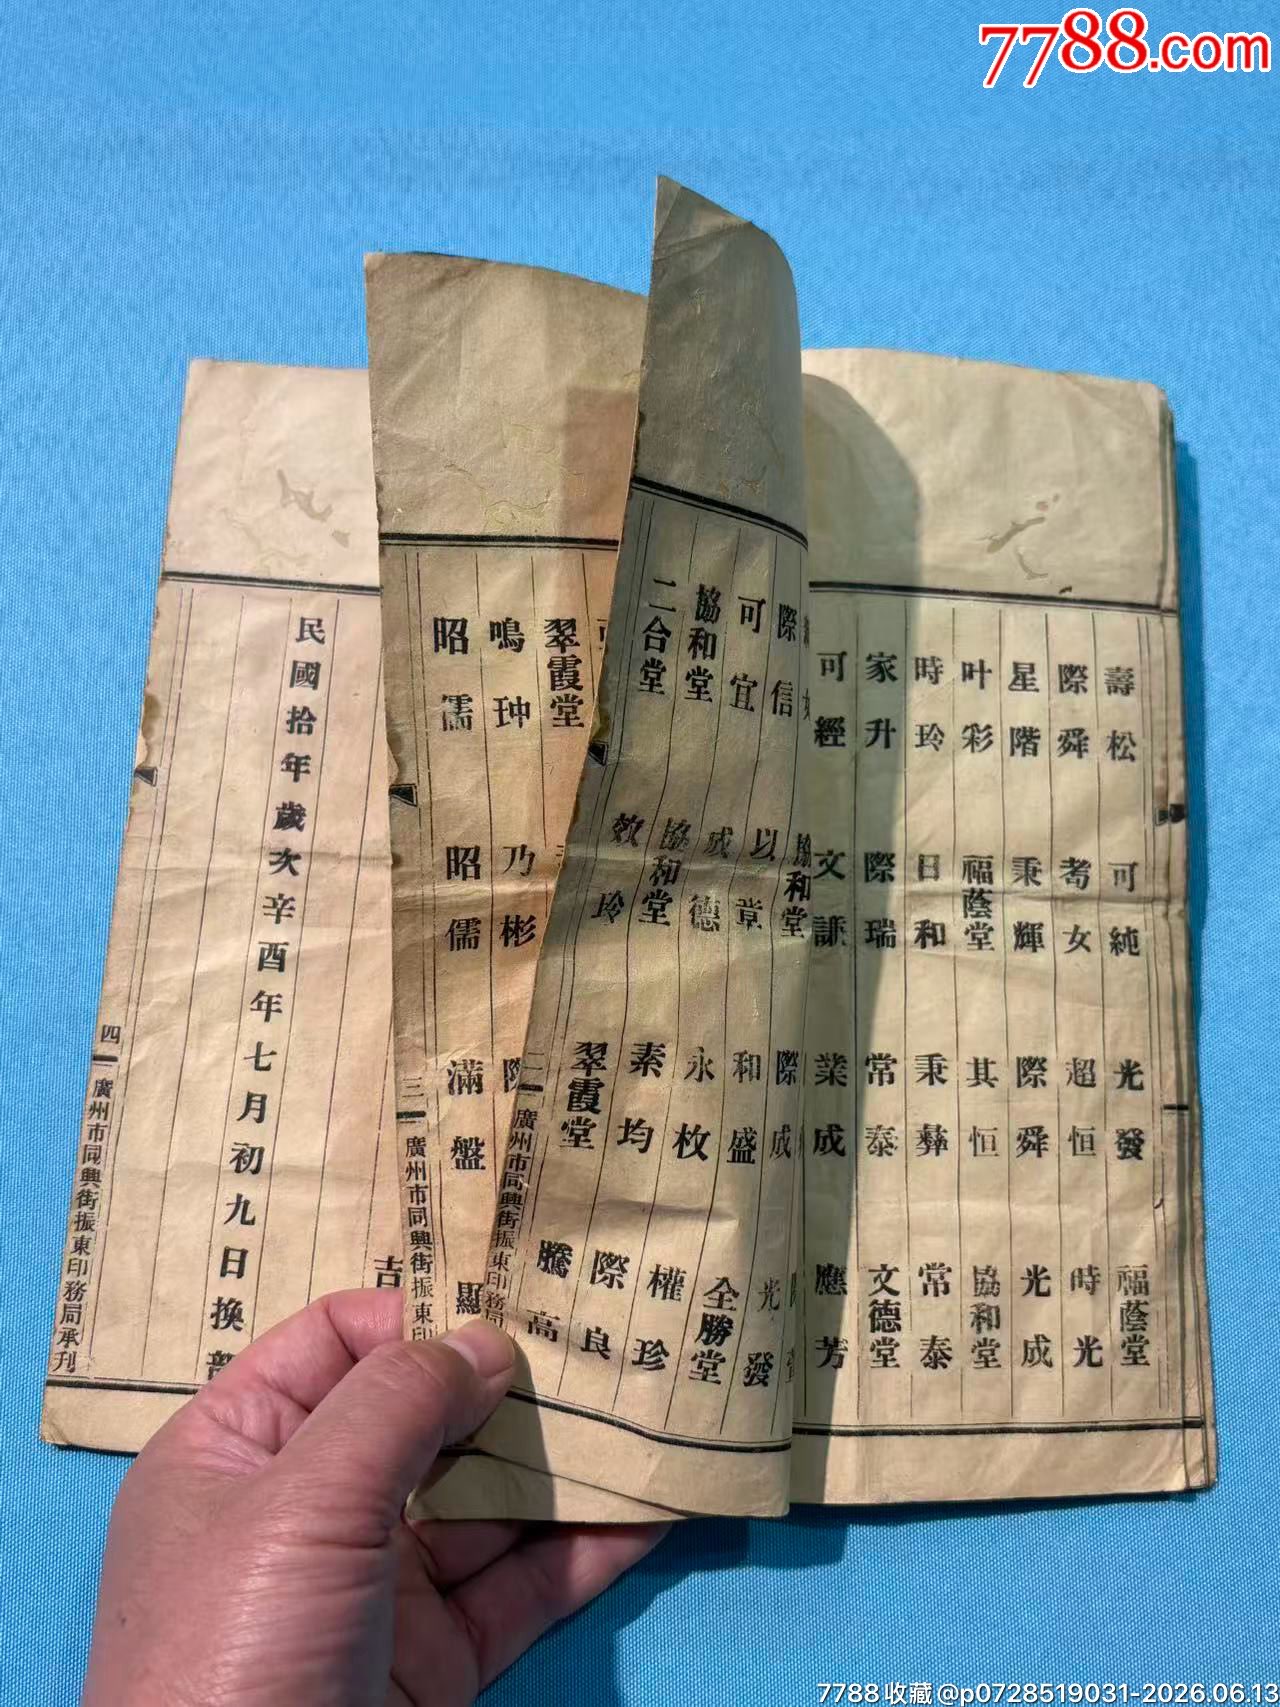 7788.com
壽松 可純 光發 福蔭堂
際舜 耇女 超恒 時光
星階 秉輝 際舜 光成
叶彩 福蔭堂 其恒 協和堂
時玲 日和 秉彝 常泰
家升 際瑞 常泰 文德堂
可經 文謙 業成 應芳
際信 協和堂 際成
可宜 以章 和盛 光發
協和堂 成德 永枚 全勝堂
二合堂 協和堂 素均 權珍
效玲 翠霞堂 際良
騰高
二 廣州市同興街振東印務局
翠霞堂
鳴珅 乃彬
昭儒 昭儒 滿盤 顯
三 廣州市同興街振東印
吉
民國拾年歲次辛酉年七月初九日換部
四 廣州市同興街振東印務局承刊
7788收藏@p0728519031-2026.06.13